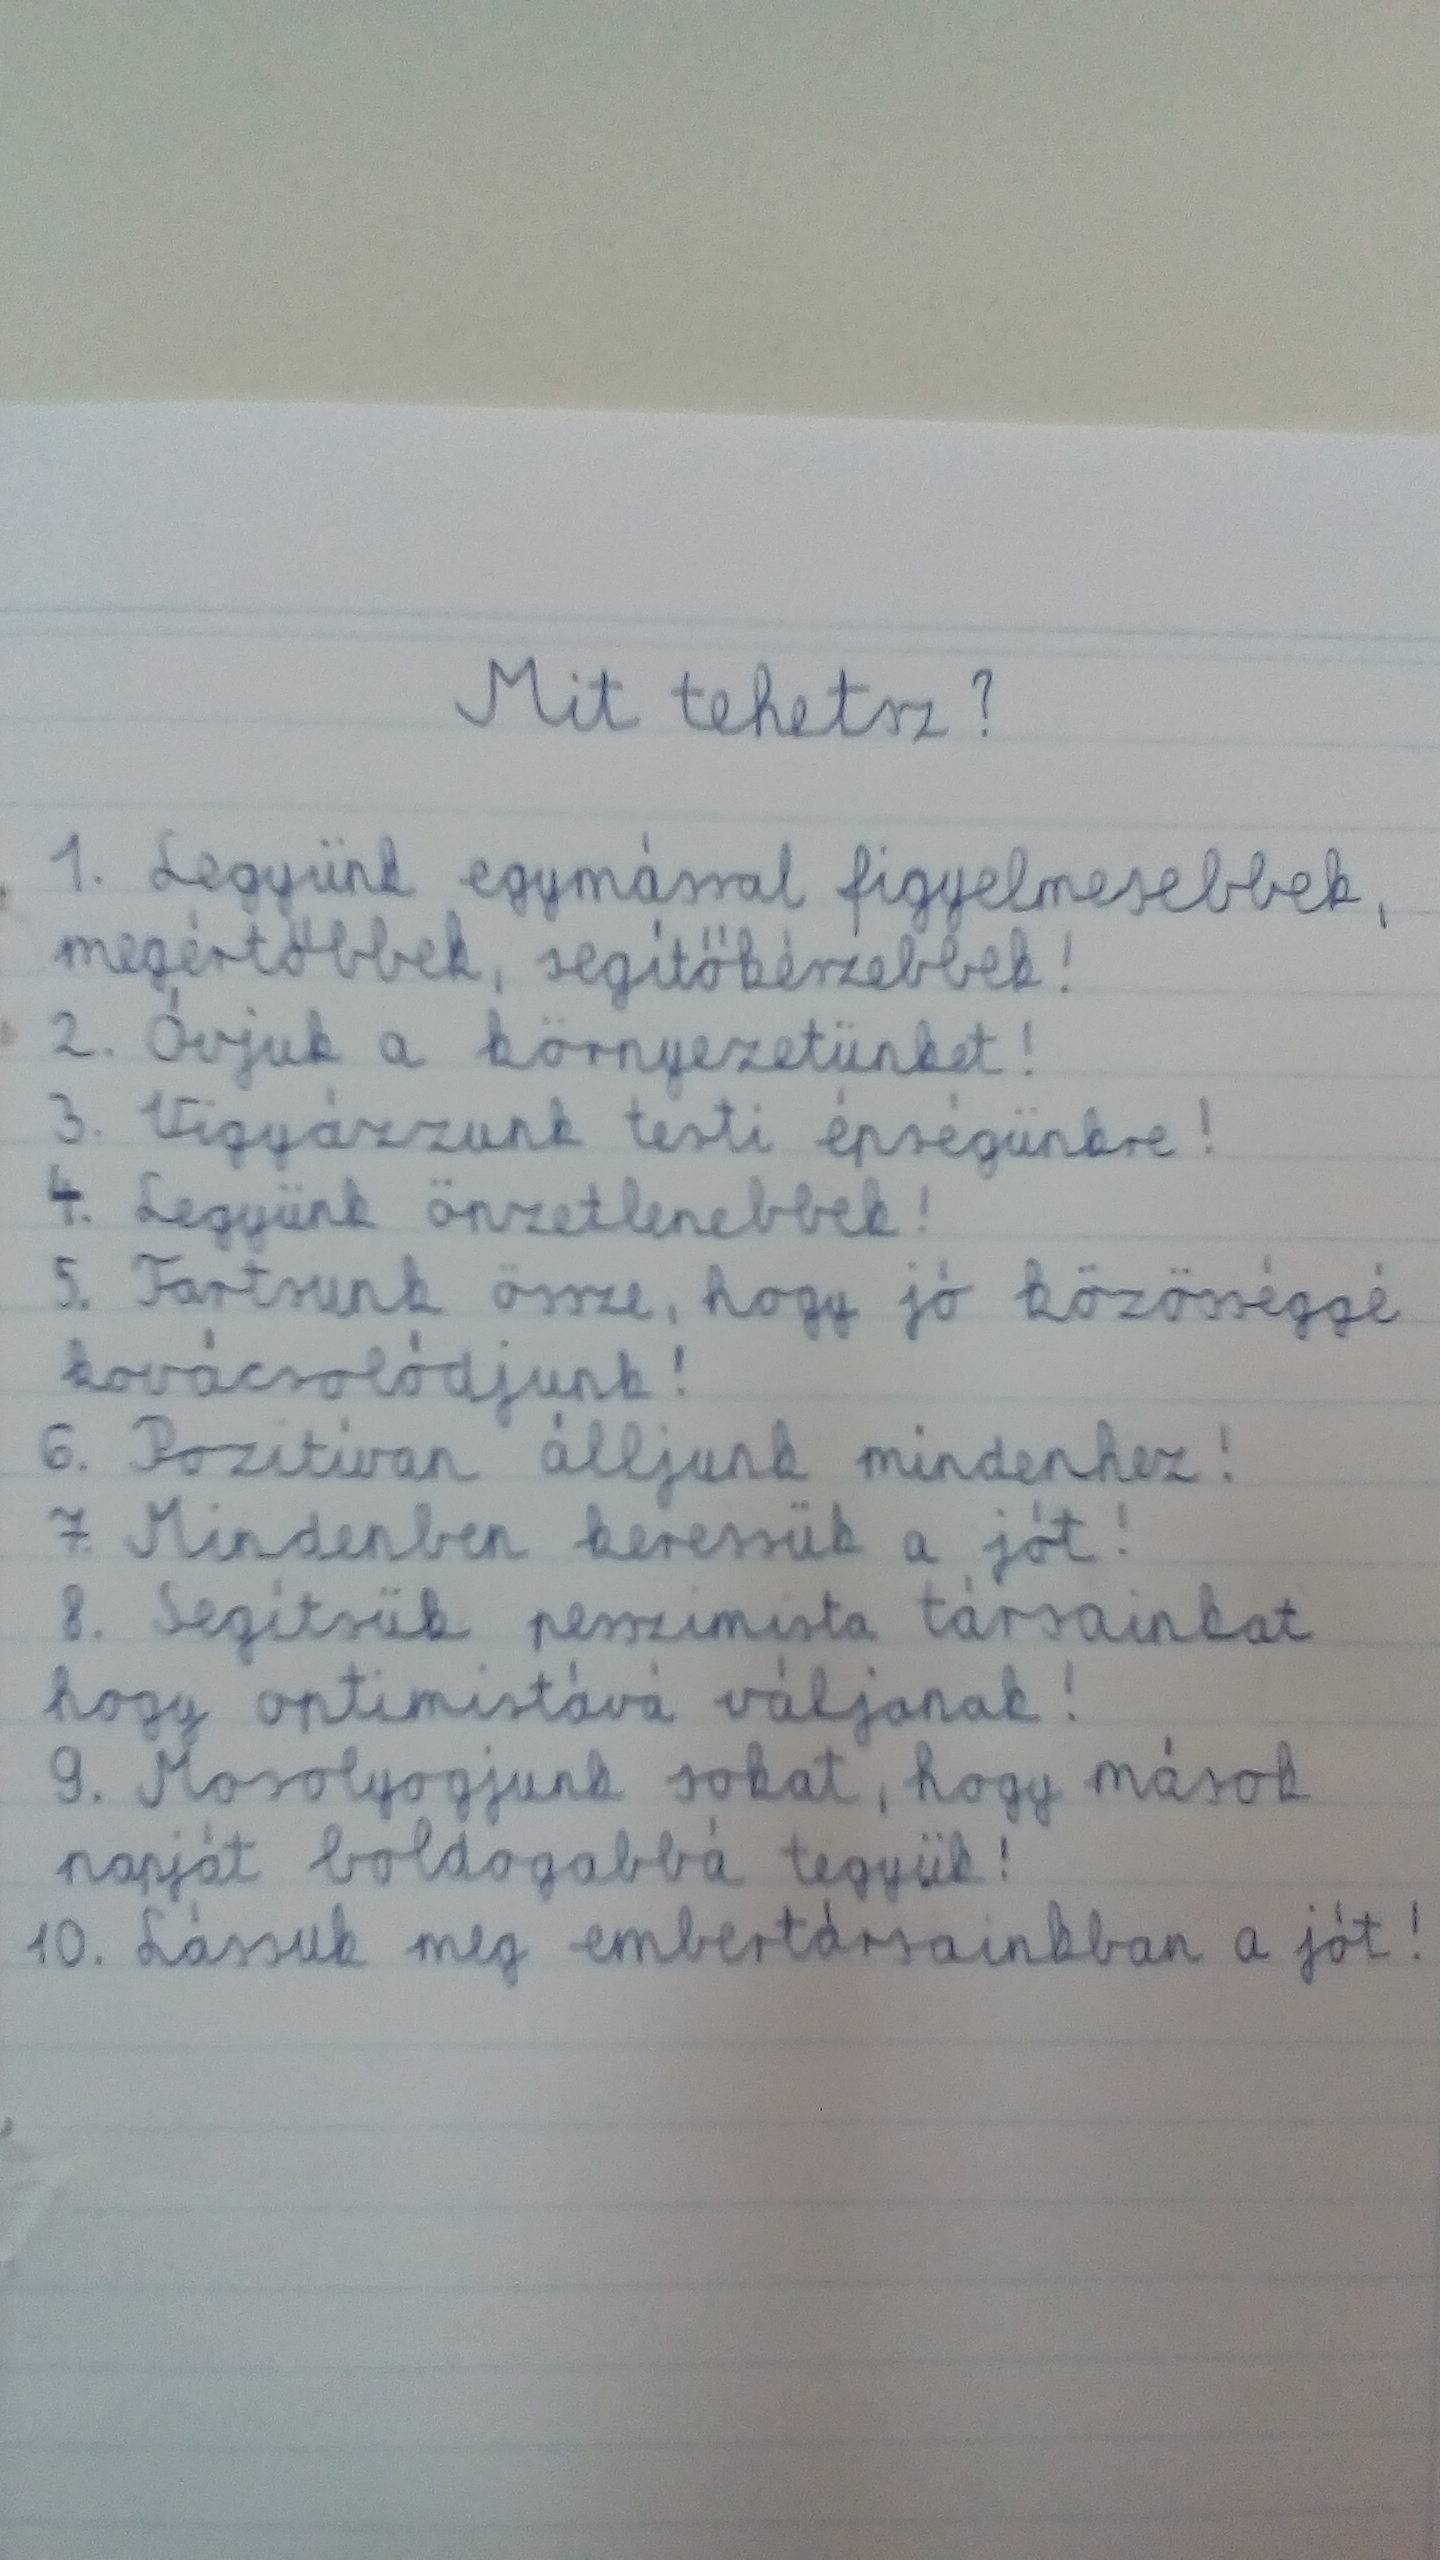 Mit tehetsz?
1. Legyünk egymással figyelmesebbek,
megértőbbek, segítőkészebbek!
2. Óvjuk a környezetünket!
3. Vigyázzunk testi épségünkre!
4. Legyünk önzetlenebbek!
5. Tartsunk össze, hogy jó közösséggé
kovácsolódjunk!
6. Pozitívan álljunk mindenhez!
7. Mindenben keressük a jót!
8. Segítsük pesszimista társainkat
hogy optimistává váljanak!
9. Mosolyogjunk sokat, hogy mások
napját boldogabbá tegyük!
10. Lássuk meg embertársainkban a jót!